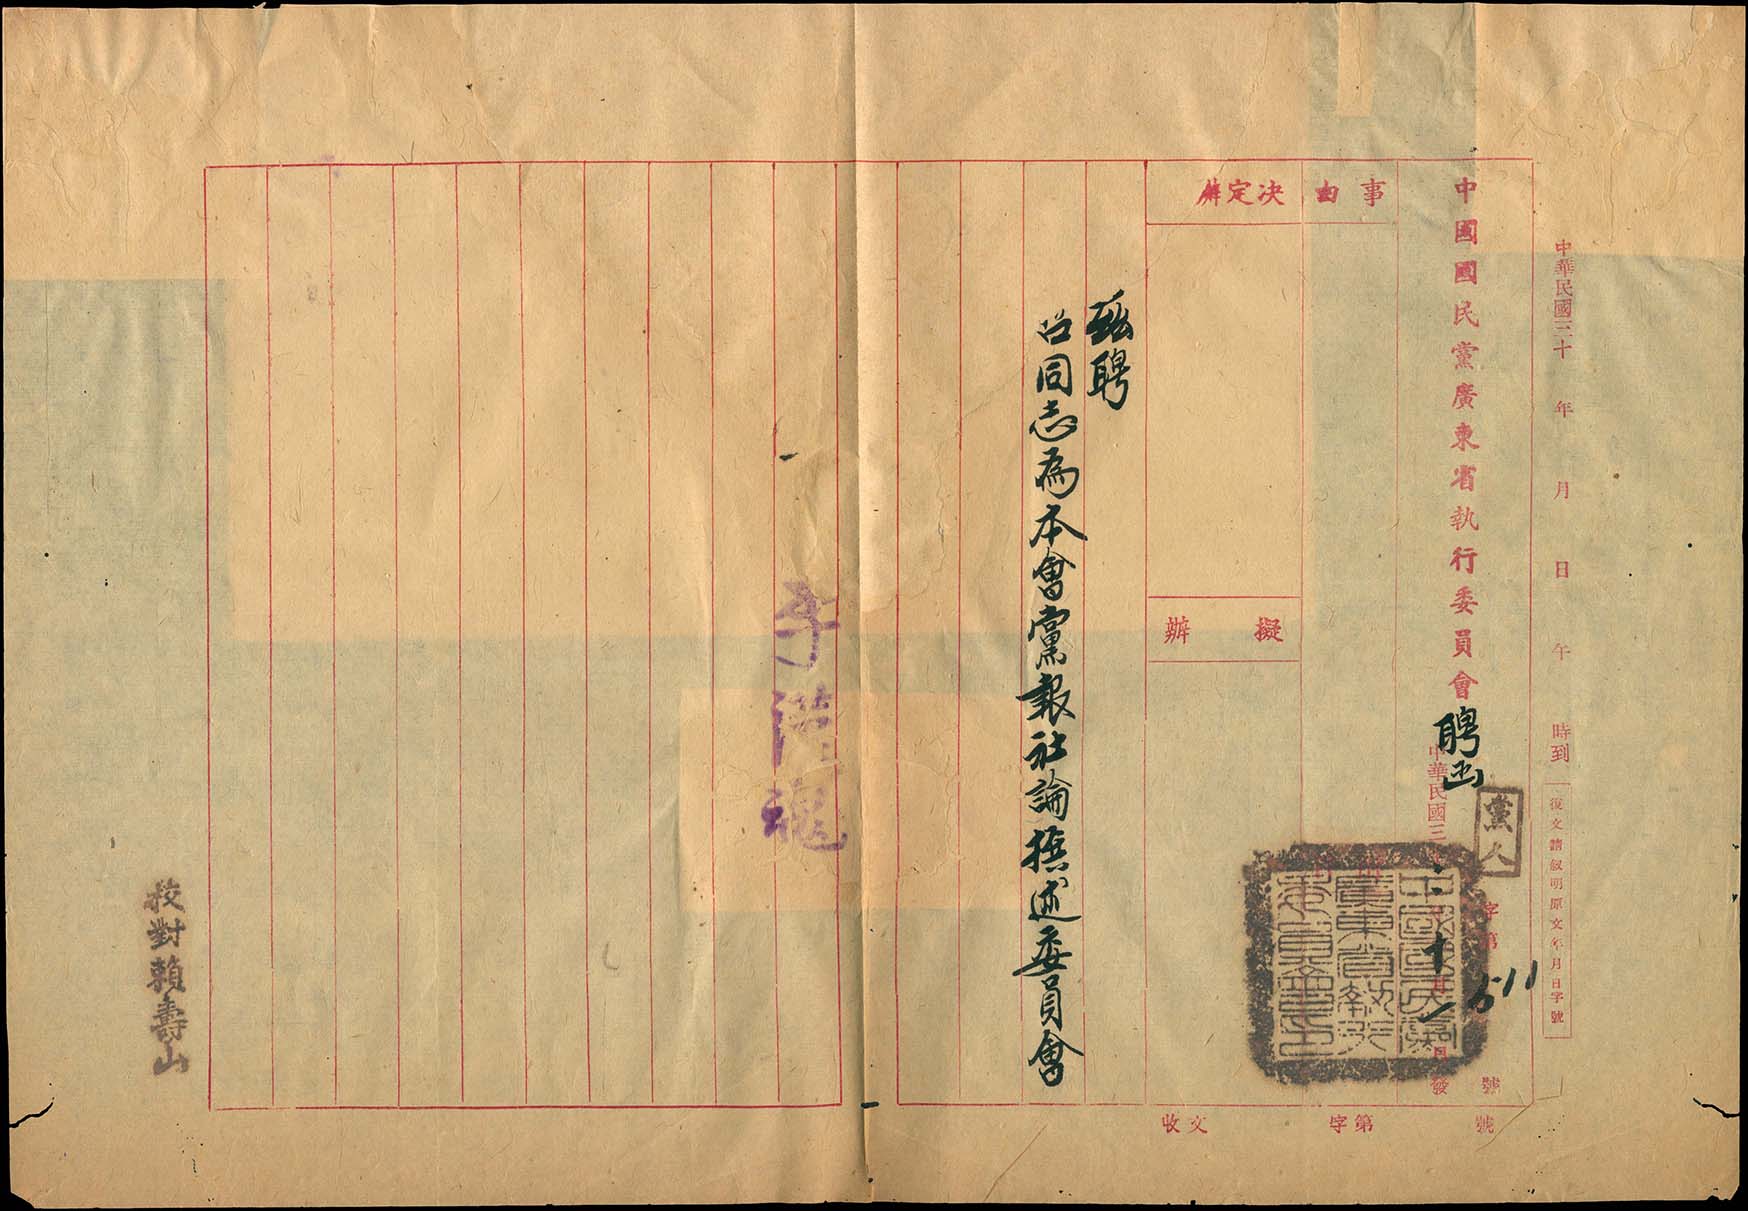 中華民國三十 年 月 日 午 時到
復文請敘明原文年月日字號
中國國民黨廣東省執行委員會聘函
黨人 字第 511 號
中華民國三 十 月 一 日發
事由
決定辦
擬辦
中國國民黨
廣東省執行
委員會印
茲聘
台同志為本會黨報社論撰述委員會
李漢魂
校對賴壽山
收文 字第 號